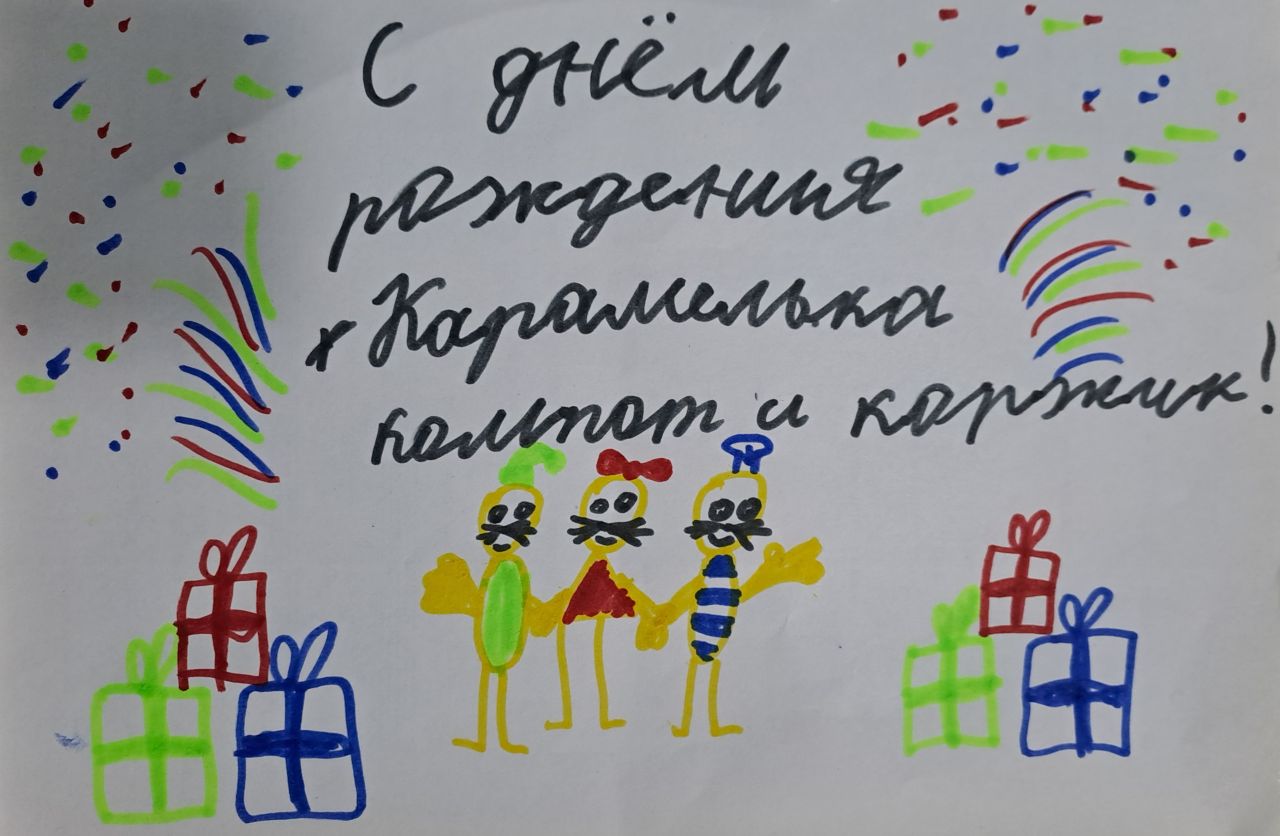 С днём
рождения
Карамелька
компот и коржик!